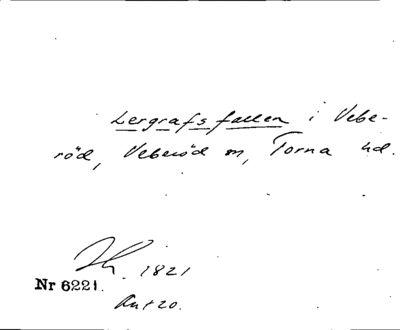 Lergrafsfallen i Vebe-
röd, Veberöd sn, Torna hd.
1821
Nr 6221.